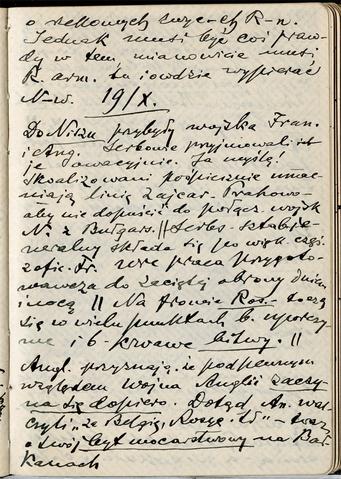 o rekomych zwyc-ch R-n.
Jednak musi być coś praw-
dy w tem, mianowicie musi
R. arm. tu i owdzie wypierać
N-w. 19/X.
Do Niszu przybyły wojska Fran.
i Ang. Serbowie przyjmowali ich
je owacyjnie. Ja myślę!
Skoalizowani pośpiesznie umac-
niają linię Zajcar - Prahowo -
aby nie dopuścić do połącz. wojsk
N. z Bułgars. || Serbs. sztab je-
neralny składa się po więk. części
z ofic. Fr. wre praca przygoto-
wawcza do zaciętej obrony dniem
i nocą || Na froncie Ros. - toczą
się w wielu punktach b. uporczy-
we i b. krwawe bitwy. ||
Angl. przyznają, że pod pewnym
względem wojna Anglii zaczy-
na się dopiero. Dotąd An. wal-
czyli „za Belgię, Rosję i S" - teraz
o swój byt mocarstwowy na Bał-
kanach